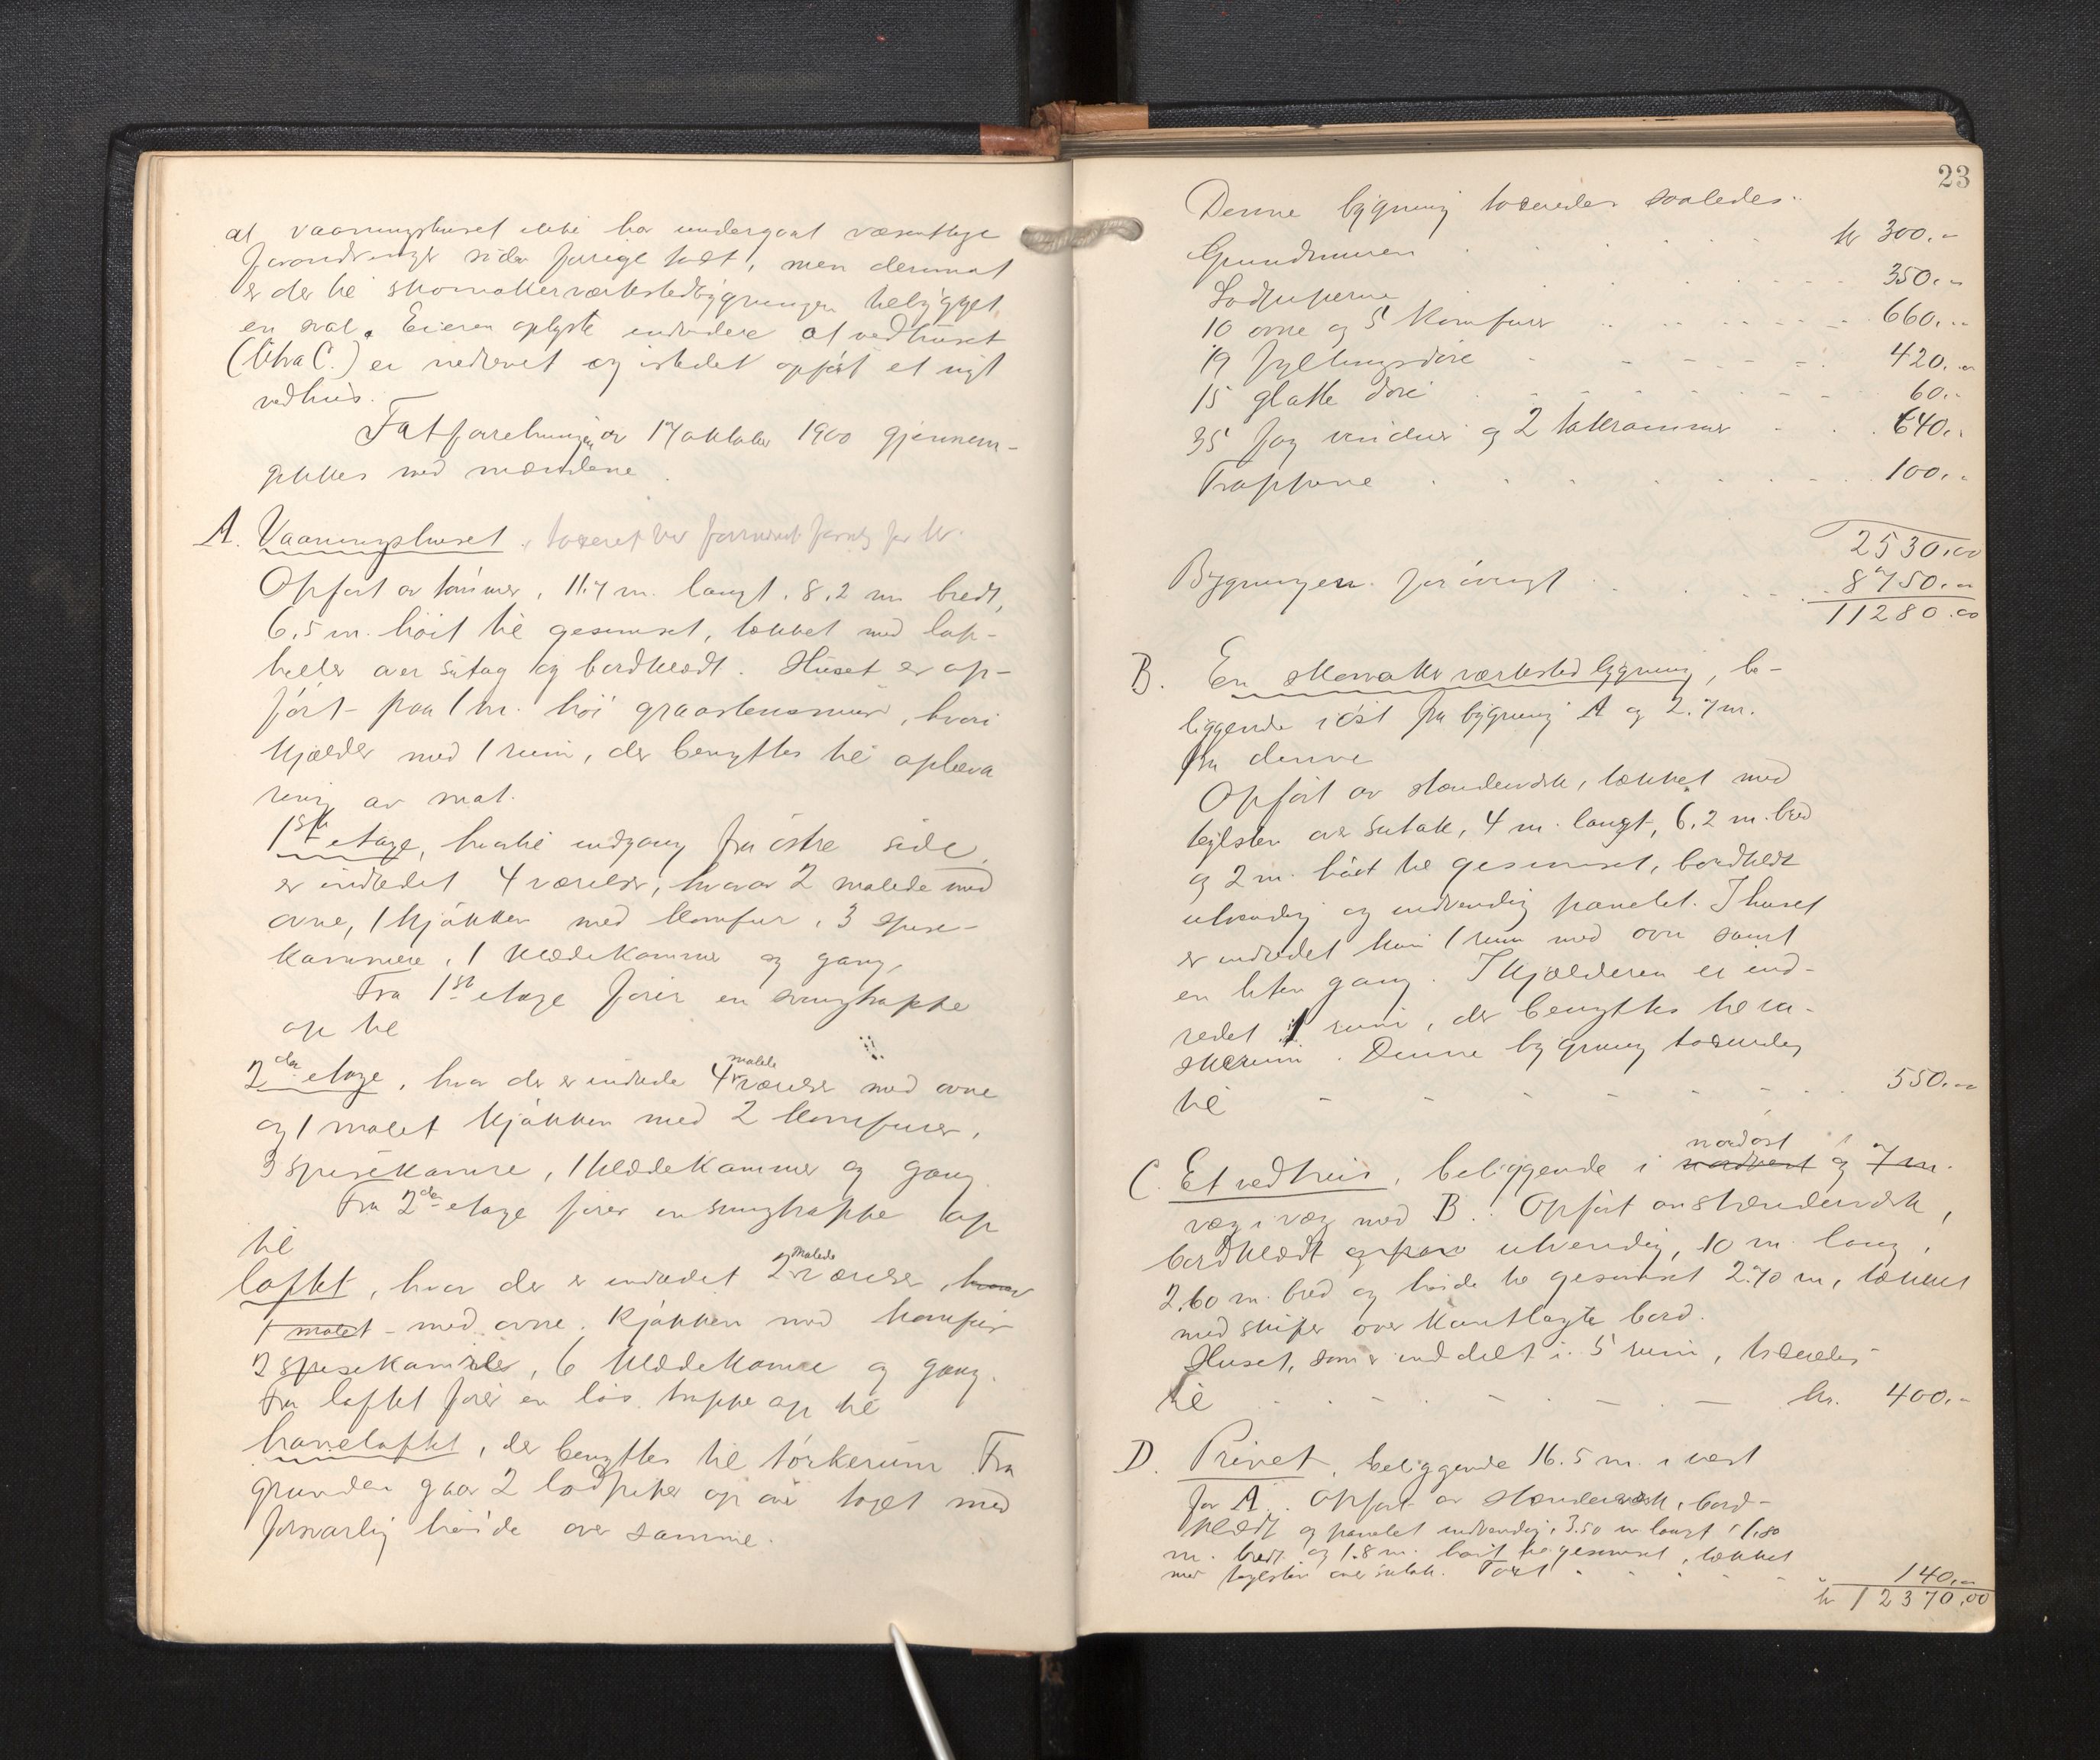 at vaaningshuset ikke har undergaat væsentlige
forandringer siden forrige takst, men derimot
er der til skomakerværkstedbygningen tilbygget
en sval. Eieren oplyste endvidere at vedhuset
(litra C.) er nedrevet og istedet opført et nyt
vedhus.
Takstforretningen av 17 oktober 1900 gjennem-
gikkes med mændene.
A. Vaaningshuset. taxeret
Opført av tømmer, 11.7 m. langt, 8,2 m bredt,
6,5 m. høit til gesimset, tækket med lap-
heller over sutag og bordklædt. Huset er op-
ført paa 1 m. høi graastensmur, hvori
kjælder med 1 rum, der benyttes til opbeva
ring av mat.
1ste etage, hvortil indgang fra østre side,
er indredet 4 værelser, hvorav 2 malede med
ovne, 1 kjøkken med komfur, 3 spise-
kammere, 1 klædekammer og gang,
Fra 1ste etage fører en svingtrappe
op til
2den etage, hvor der er indrede 4 malede værelser med ovne
og 1 malet kjøkken med 2 komfurer,
3 spisekamre, 1 klædekammer og gang.
Fra 2den etage fører en svingtrappe op
til
loftet, hvor der er indredet 2 malede værelser, hvorav
1 malet - med ovne. Kjøkken med komfur
2 spisekamre, 6 klædekamre og gang.
Fra loftet fører en løs trappe op til
haneloftet, der benyttes til tørkerum. Fra
grunden gaar 2 lodpiper op over taget med
forsvarlig høide over samme.
23
Denne bygning taxeredes saaledes:
Grundmuren kr 300.-
Lodpiperne 350.-
10 ovne og 5 komfurer 660.-
19 fyldingsdøre 420.-
15 glatte døre 60.-
35 fag vinduer og 2 takrammer 640.-
Trapperne 100.-
2530.00
Bygningen forøvrigt 8750.-
11280.00
B. En skomakerværkstedbygning, be-
liggende i øst fra bygning A og 2.7 m.
fra denne
Opført av stenderverk, tækket med
teglsten over sutak, 4 m. langt, 6,2 m. bred
og 2 m. høit til gesimset, bordklædt
utvendig og indvendig panelet. I huset
er indredet kun 1 rum med ovn samt
en liten gang. I kjælderen er ind-
redet 1 rum, der benyttes til va-
skerum. Denne bygning taxeredes
til 550.-
C. Et vedhus, beliggende i nordvest nordøst og 7 m.
væg i væg med B. Opført av stænderverk,
bordklædt utvendig, 10 m lang,
2.60 m. bred og høide til gesimset 2.70 m, tækket
med skifer over kantlagte bord.
Huset, som er inddelt i 5 rum, taxeredes
til kr. 400.-
D. Privet, beliggende 16.5 m. i vest
for A. Opført av stænderverk, bord-
klædt og panelet indvendig, 3.50 m langt, 1,80
m. bredt og 1.8 m. høit til gesimset, tækket
med teglsten over sutak. Taxt 140.-
kr 12370,00